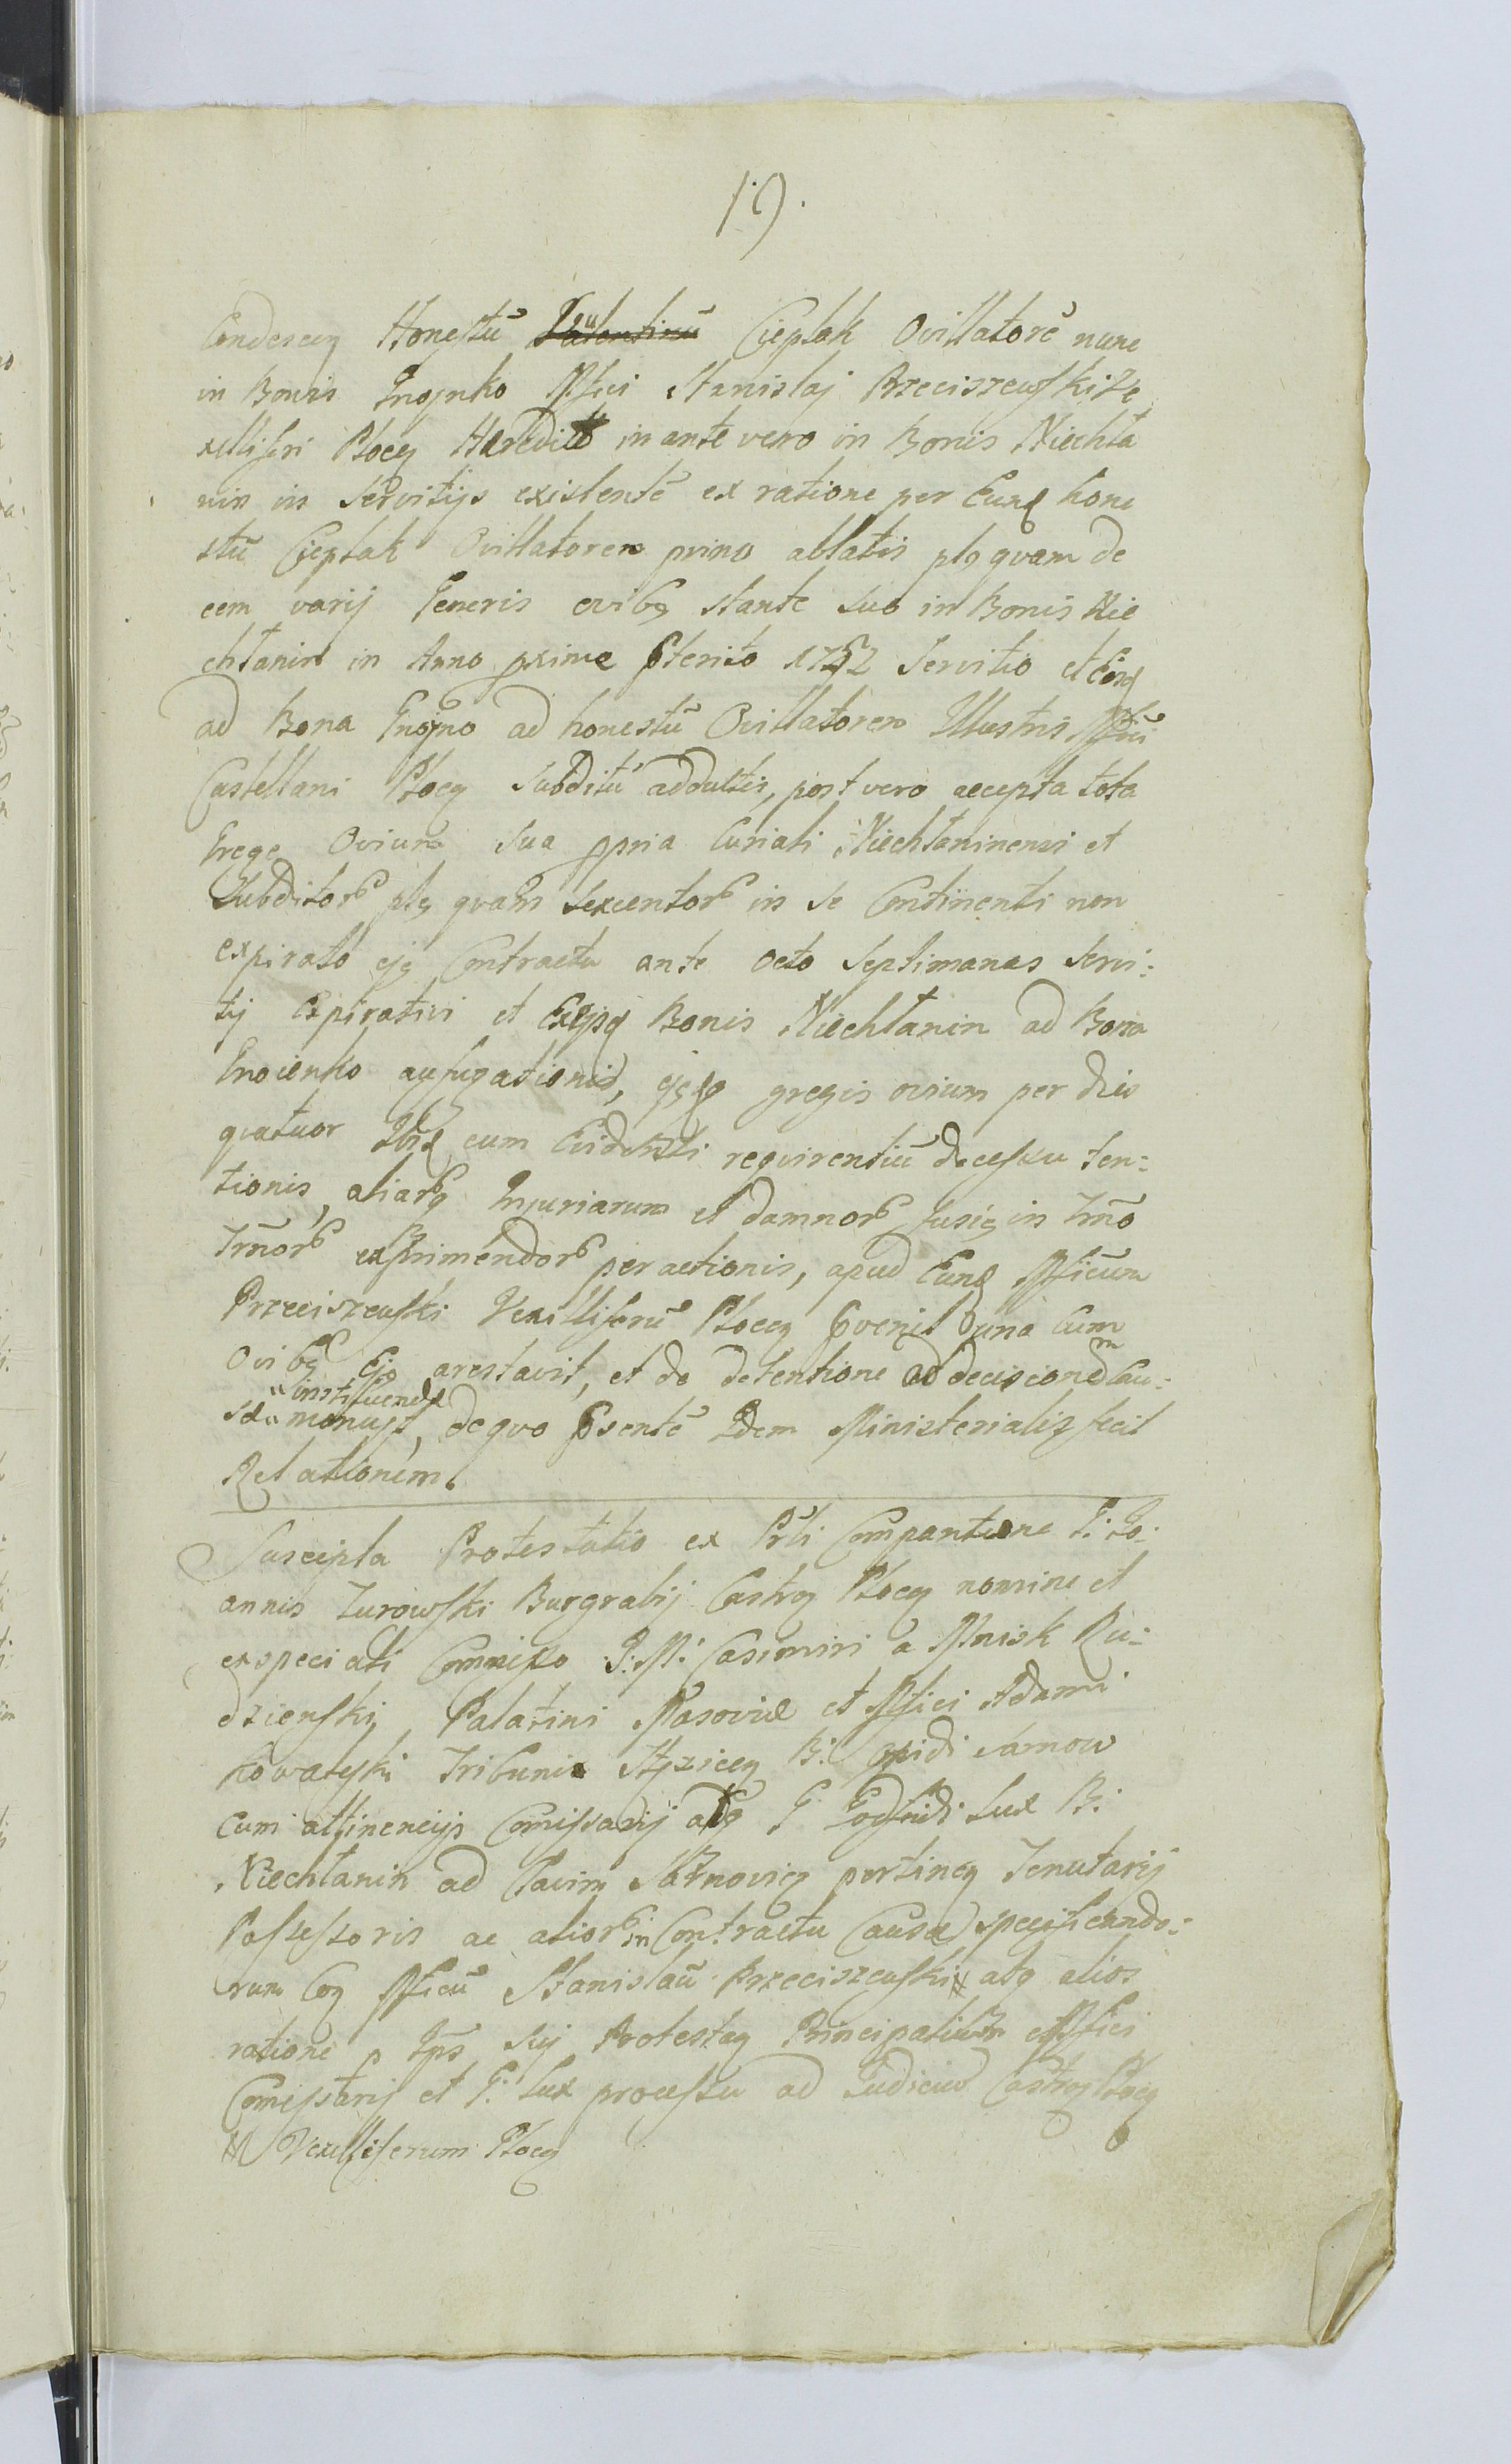 19.
Condescen Honestũ Cieplak Ovillatorẽ nunc
in Bonis Gnoynko Mfici Stanislaj Przeciszewski Ve
xilliferi Plocen Hæredit in ante vero in Boniis Niechła
nin in Servitijs existentẽ ex ratione per Eund hone
stũ Cieplak Ovillatorem primo ablatis plq quam de
cem varij Generis ovibq stante suo in Bonis Nie
chłanin in Anno proxime pterito 1752 Servitio et
ad Bona Gnoyno ad honestũ Ovillatorem Illustris Mfici
Castellani Plocen Subditũ adductis, post vero accepta tota
Grege Ovium sua ppria Curiali Niechłaninensi et
Subditor plq quam sexcentor in se Continenti non
expirato ejq Contractu ante octo Septimanas Servi:
tij Expirativi et Bonis Niechłanin ad Bona
Gnoienko aufugationis, gregis ovium per dies
quatuor Ibid cum Evidenti requirentiũ decessu ten:
tionis, aliarq Injuriarum et damnor fusiq in Trño
Trñor exprimendor peractionis, apud Eund Mficum
Przeciszewski Vexilliferũ Plocen pvenit una cum
Ovibq Ejq arestavit, et de detentione ad decisionem Cau:
sæ "instituendæ" monuit, de quo psentẽ Idem Ministerialis fecit
Relationem.
Suscepta Protestatio ex Prli Comparitione G: Jo:
annis Zurowski Burgrabij Castren Plocen nomine et
ex speciali Commisso I: M: Casimiri a Mnisk Ru:
dzienski, Palatini Masoviæ et Mfici Adami
Kowalski Tribuni Stęzicen B: opidi Sarnow
cum attinencijs Comissarij atq G Godfridi Lux B:
Niechłanin ad Clavim Sarnovien pertinen Tenutarij
Possessoris ac alior in Contractu Causæ specificando:
rum Con Mficũ Stanislaũ Przeciszewski # atq alios
ratione p Ips sui Protestan Principalium et Mfici
Comissarij et G: Lux processu ad Judicium Castren Plocen
# Vexilliferum Plocen